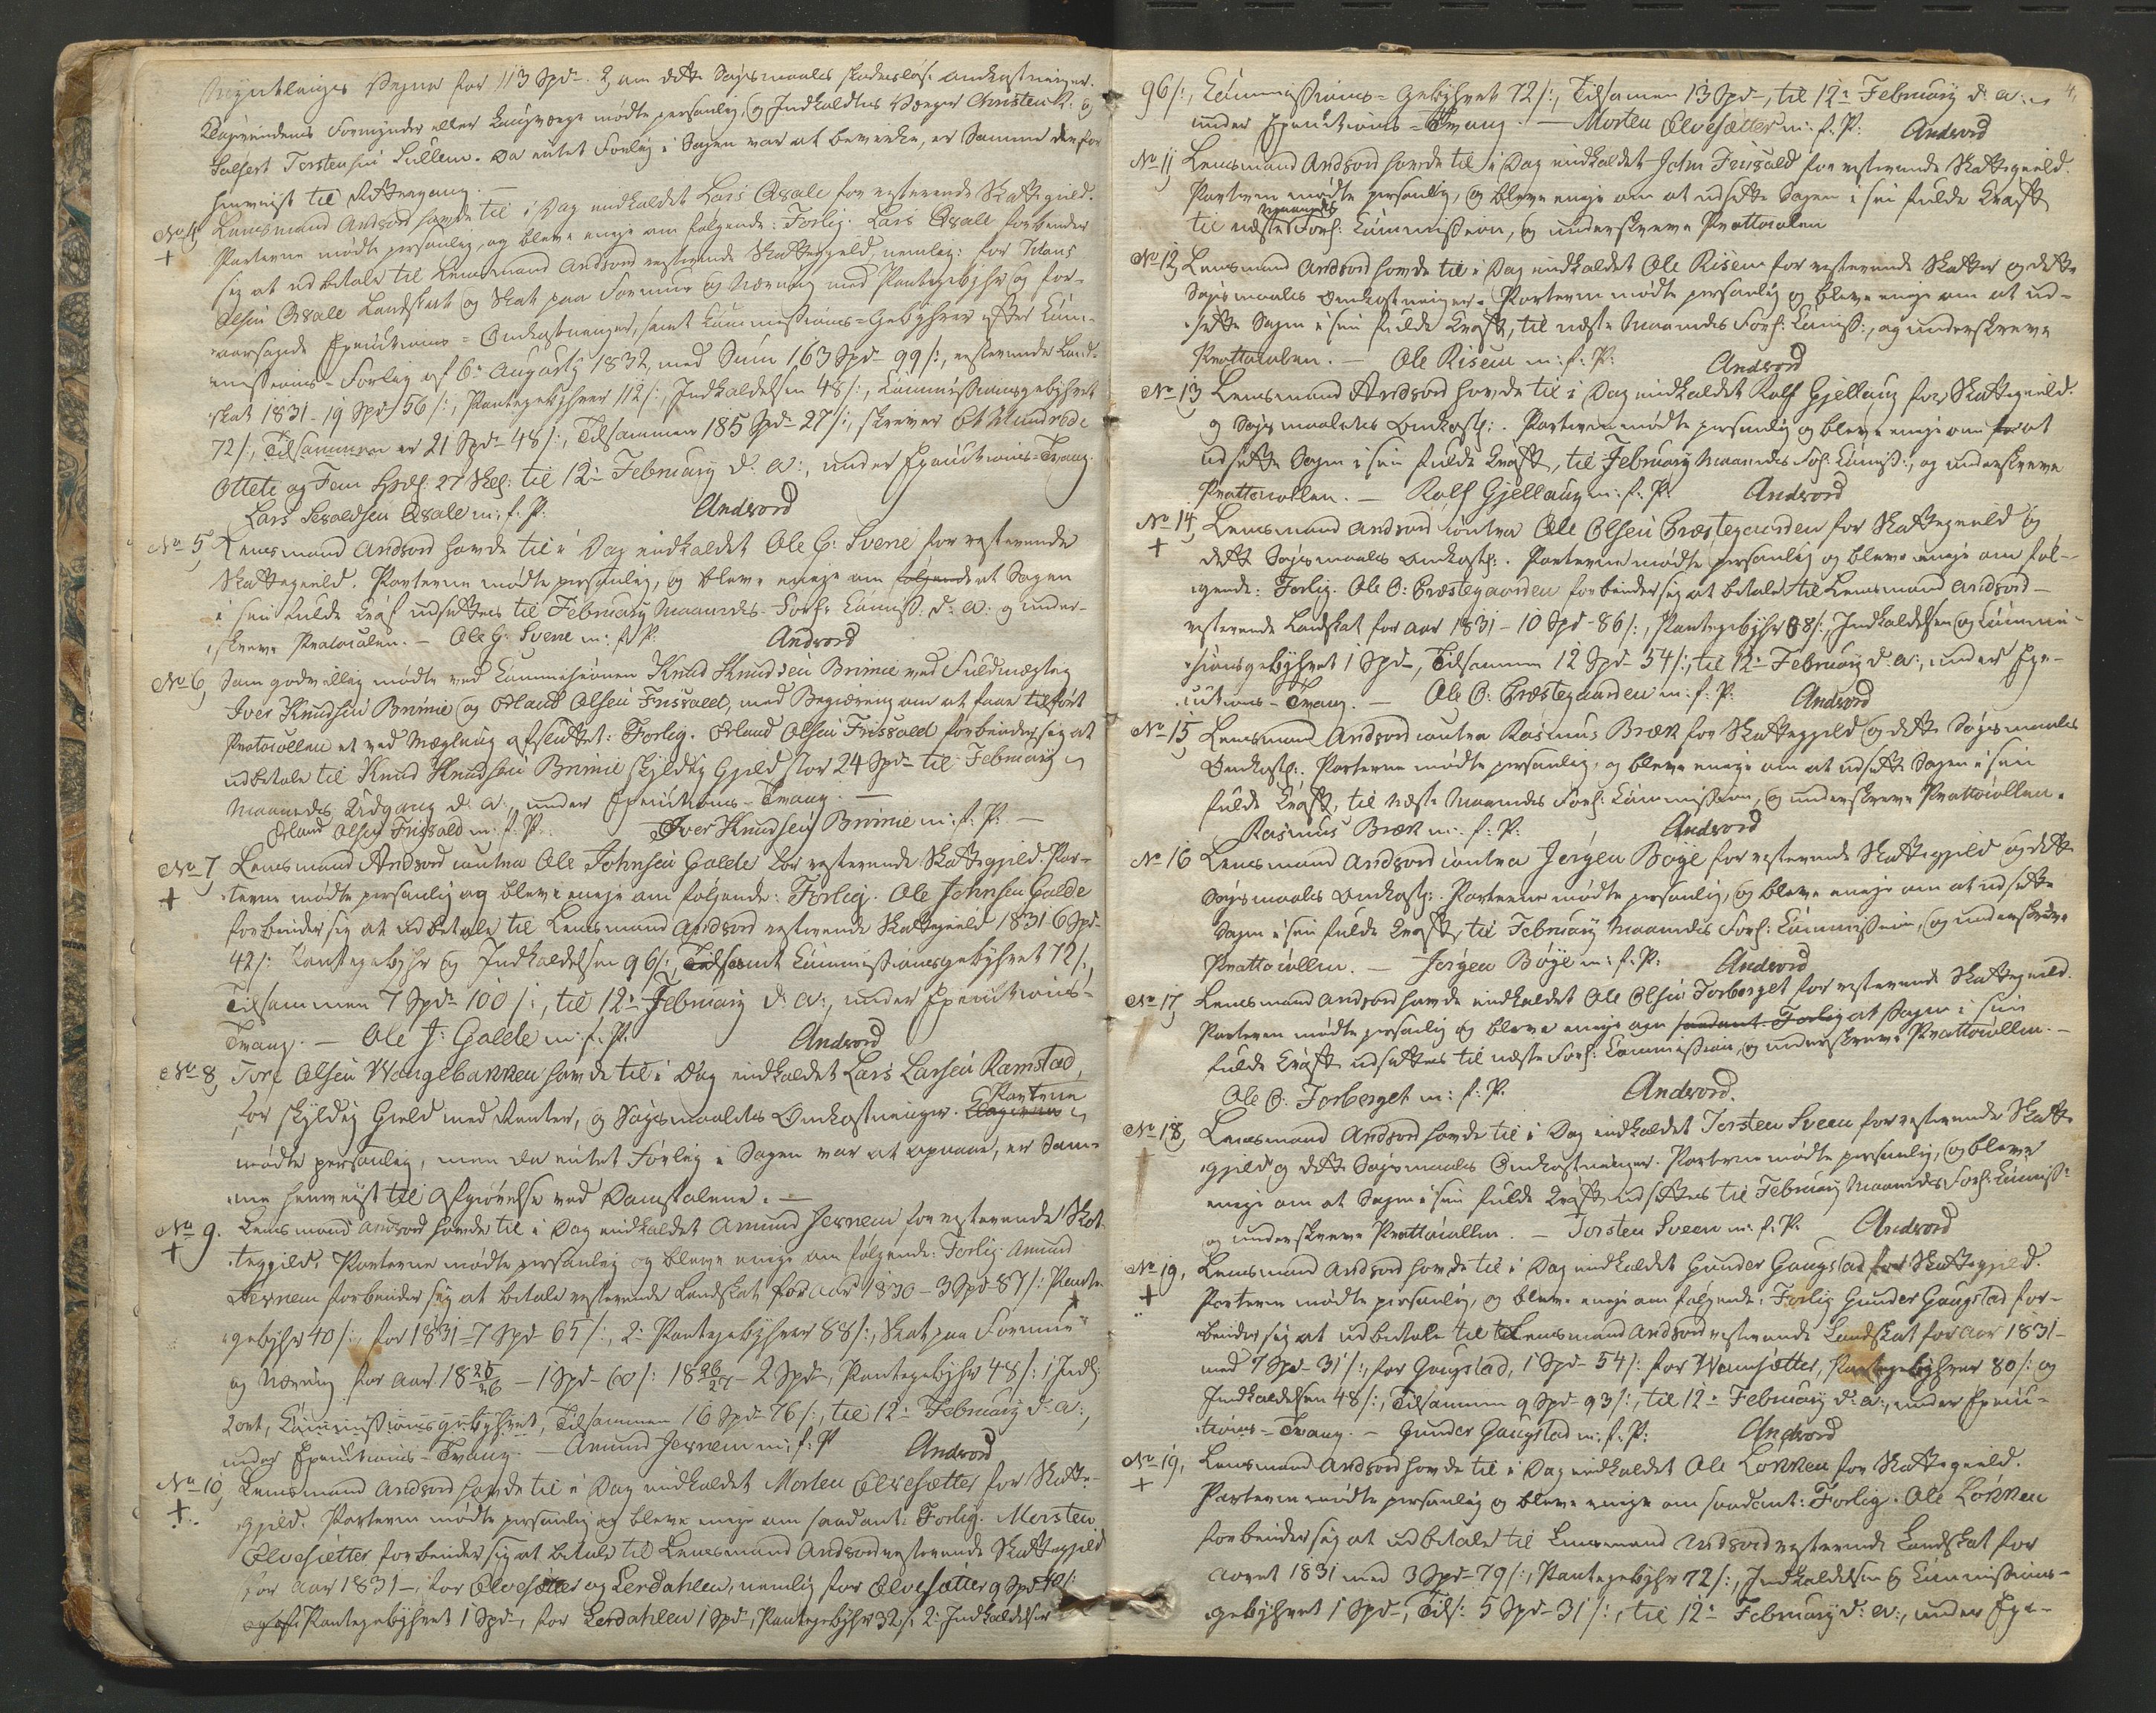 Myndlinges Vegne for 113 Spd. & om dette Søgsmaals skadesløse Omkostninger.
Klagerindens Formynder eller Laugværge mødte personlig, og Indkaldtes Værger Christen R: og
Torstensen Sulleen. Da intet Forlig i Sagen var at bevirke, er Samme derfor
henviist til Rettergang. —
No 4, Lensmand Andvord havde til i Dag indkaldet Lars Qvale for resterende Skattegield.
+ Parterne mødte personlig, og bleve enige om følgende: Forlig. Lars Qvale forbinder
sig at udbetale til Lensmand Andvord resterende Skattegield, nemlig: for
Olsen Qvale Landskat og Skat paa Formue og Næring med Pantegebyhr og for-
aarsagede Executions-Omkostninger, samt Commissions-Gebyhrer efter Com-
missions-Forlig af 6te Augusty 1832, med Sum 163 Spd 99 /:, resterende Land-
skat 1831 - 19 Spd 56 /:, Pantegebyhrer 112 /:, Indkaldelsen 48 /:, Commissionsgebyhret
72 /:, Tilsammen er 21 Spd 48 /:, Tilsammen 185 Spd 27 /:, skriver Et Hundrede
Ottete og Fem Spdl: 27 Skl: til 12te February d: A:, under Executions-Tvang.
Lars Sevaldsen Qvale m: f: P: Andvord
No 5, Lensmand Andvord havde til i Dag indkaldet Ole G: Svene for resterende
Skattegield. Parterne mødte personlig, og bleve enige om følgende at Sagen
i sin fulde Kraf udsættes til February Maaneds-Forl: Commiss: d: A: og under-
skreve Protocolen. — Ole G: Svene m: f: P: Andvord
No 6, Som godvillig mødte ved Commissionen Knud Knudsen Brimie ved Fuldmægtig
Iver Knudsen Brimie og Erland Olsen Frisvold, med Begiæring om at faae tilført
Protocollen et ved Mægling afsluttet: Forlig. Erland Olsen Frisvold forbinder sig at
udbetale til Knud Knudsen Brimie skyldig Gjeld stor 24 Spd til February
Maaneds Udgang d: A:, under Executions-Tvang. —
Erland Olsen Frisvold m: f: P: Iver Knudsen Brimie m: f: P: —
No 7, Lensmand Andvord contra Ole Johnsen Galde for resterende Skattegjeld. Par-
+ terne mødte personlig og bleve enige om følgende: Forlig. Ole Johnsen Galde
forbinder sig at udbetale til Lensmand Andvord resterende Skattegield 1831 6 Spd
42 /: Pantegebyhr og Indkaldelsen 96 /:, samt Commissionsgebyhret 72 /:,
Tilsammen 7 Spd 100 /:, til 12te February d: A:, under Executions-
Tvang. — Ole J: Galde m: f: P: Andvord
No 8, Tore Olsen Wangsbakken havde til i Dag indkaldet Lars Larsen Ramstad,
for skyldig Gield med Renter, og Søgsmaalets Omkostninger. Parterne
mødte personlig, men da intet Forlig i Sagen var at opnaae, er Sam-
me henviist til Afgiørelse ved Domstolene. —
No 9. Lensmand Andvord havde til i Dag indkaldet Amund Jernem for resterende Skat-
+ tegjeld. Parterne mødte personlig og bleve enige om følgende: Forlig Amund
Jernem forbinder sig at betale resterende Landskat for Aar 1830 - 3 Spd 87 /: Pante-
gebyhr 40 /:, for 1831 - 7 Spd 65 /:, 2: Pantegebyhrer 88 /:, Skat paa Formue
og Næring for Aar 18 25/26 - 1 Spd 60 /: 18 26/27 - 2 Spd, Pantegebyhr 48 /: 1 Indk:
2 ort, Commissionsgebyhret, Tilsammen 16 Spd 76 /:, til 12te February d: A:,
under Executions-Tvang. — Amund Jernem m: f: P Andvord
No 10, Lensmand Andvord havde til i Dag indkaldet Morten Elvesætter for Skatte-
+ gjeld. Parterne mødte personlig og bleve enige om saadant: Forlig. Morten
Elvesætter forbinder sig at betale til Lensmand Andvord resterende Skattegjeld
for Aar 1831 -, for Elvesætter og Lerdahlen, nemlig for Elvesætter 9 Spd 40 /:
Pantegebyhret 1 Spd, for Lerdahlen 1 Spd, Pantegebyhr 32 /: 2: Indkaldelser
4,
96 /:, Commissions-Gebyhret 72 /:, Tilsamen 13 Spd, til 12te February d: A:
under Executions-Tvang. — Morten Elvesætter m: f: P: Andvord
No 11, Lensmand Andvord havde til i Dag indkaldet John Frisvold for resterende Skattegield.
Parterne mødte personlig, og bleve enige om at udsætte Sagen i sin fulde Kraft
til næste Maaneds Forl: Commission, og underskreve Prottocolen
No 12, Lensmand Andvord havde til i Dag indkaldet Ole Risem for resterende Skatter og dette
Søgsmaals Omkostninger. Parterne mødte personlig og bleve enige om at ud-
sætte Sagen i sin fulde Kraft, til næste Maaneds Forl: Comiss:, og underskreve
Prottocolen. — Ole Risem m: f: P: Andvord
No 13 Lensmand Andvord havde til i Dag indkaldet Rolf Gjellaug for Skattegield.
og Søgsmaalets Omkostn:. Parterne mødte personlig og bleve enige om for at
udsætte Sagen i sin fulde Kraft, til February Maaneds Forl: Commiss:, og underskreve
Prottocollen. — Rolf Gjellaug m: f: P: Andvord
No 14, Lensmand Andvord contra Ole Olsen Præstegaarden for Skattegield og
+ dette Søgsmaals Omkostn:. Parterne mødte personlig og bleve enige om føl-
gende: Forlig. Ole O: Præstegaarden forbinder sig at betale til Lensmand Andvord —
resterende Landskat for Aar 1831 - 10 Spd 86 /:, Pantegebyhr 88 /:, Indkaldelsen og Commis-
sionsgebyhret 1 Spd, Tilsammen 12 Spd 54 /:, til 12te February d: A:, under Exe-
cutions-Tvang. — Ole O: Præstegaarden m: f: P: Andvord
No 15, Lensmand Andvord contra Rasmus Bræk for Skattegjeld og dette Søgsmaals
Omkostn:. Parterne mødte personlig, og bleve enige om at udsætte Sagen i sin
fulde Kraft, til næste Maaneds Forl: Commission, og underskreve Prottocollen.
Rasmus Bræk m: f: P: Andvord
No 16 Lensmand Andvord contra Jørgen Bøye for resterende Skattegjeld og dette
Søgsmaals Omkostn:. Parterne mødte personlig, og bleve enige om at udsætte
Sagen i sin fulde Kraft, til February Maaneds Forl: Commission, og underskreve
Prottocollen. — Jørgen Bøye m: f: P: Andvord
No 17, Lensmand Andvord havde indkaldet Ole Olsen Forberget for resterende Skattegield.
Parterne mødte personlig og bleve enige om saadant Forlig at Sagen i sin
fulde Kraft udsættes til næste Forl: Commission, og underskreve Prottocollen. —
Ole O: Forberget m: f: P. Andvord.
No 18, Lensmand Andvord havde til i Dag indkaldet Torsten Sveen for resterende Skatte-
gjeld og dette Søgsmaals Omkostninger. Parterne mødte personlig, og bleve
enige om at Sagen i sin fulde Kraft udsættes til February Maaneds Forl: Commiss:
og underskreve Prottocollen. — Torsten Sveen m: f: P. Andvord
No 19, Lensmand Andvord havde til i Dag indkaldet Gunder Gaugstad for Skattegjeld.
+ Parterne mødte personlig, og bleve enige om følgende: Forlig Gunder Gaugstad for-
binder sig at udbetale til Lensmand Andvord resterende Landskat for Aar 1831 -
med 7 Spd 31 /:, for Gaugstad, 1 Spd 54 /: for Wamsætter, Pantegebyhrer 80 /: og
Indkaldelsen 48 /:, Tilsammen 9 Spd 93 /:, til 12te February d: A:, under Execu-
tions-Tvang. — Gunder Gaugstad m: f: P: Andvord
No 19, Lensmand Andvord havde til i Dag indkaldet Ole Løkken for Skattegield.
+ Parterne mødte personlig og bleve enige om saadant: Forlig. Ole Løkken
forbinder sig at udbetale til Lensmand Andvord resterende Landskat for
Aaret 1831 med 3 Spd 79 /:, Pantegebyhr 72 /:, Indkaldelsen og Commissions-
gebyhret 1 Spd, Tils: 5 Spd 31 /:, til 12te February d: A:, under Exe-